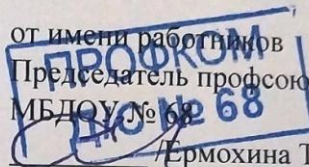 от имени работников
Председатель профсою
МБДОУ № 68
/Ермохина Т
ПРОФКОМ
ДОУ № 68